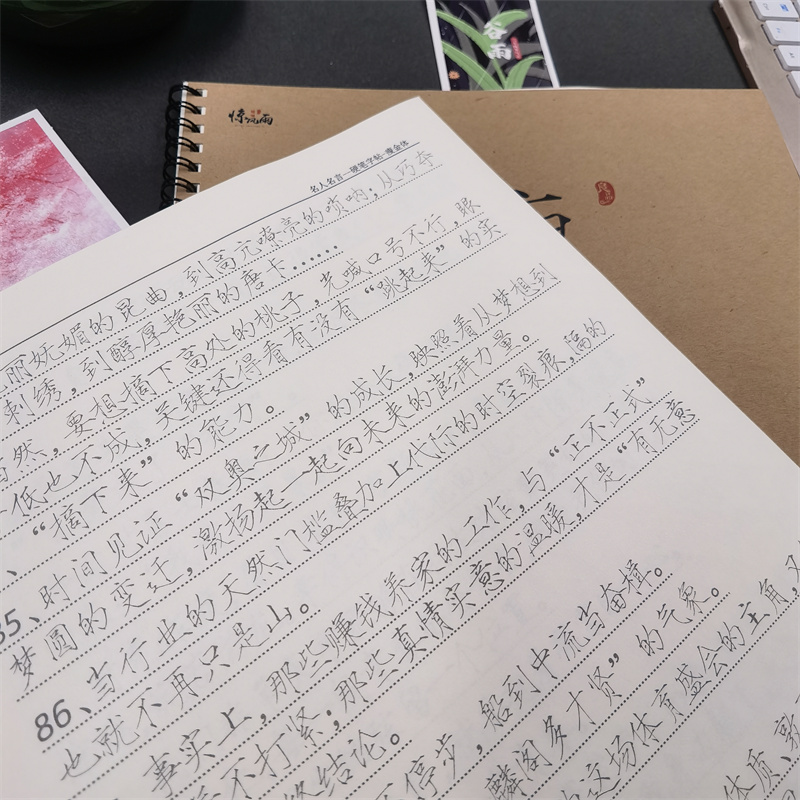 谷雨
惊风雨
名人名言—硬笔字帖·瘦金体
丽妩媚的昆曲,到高亢嘹亮的唢呐;从巧夺
刺绣,到醇厚艳丽的唐卡……
当然,要想摘下高处的桃子,光喊口号不行,眼
低也不成,关键还得看有没有“跳起来”的实
“摘下来”的能力。
85、时间见证“双奥之城”的成长,映照着从梦想到
梦圆的变迁,激扬起一起向未来的澎湃力量。
86、当行业的天然门槛叠加上代际的时空裂痕,隔的
也就不再只是山。
事实上,那些赚钱养家的工作,与“正不正式”
不打紧;那些真情实意的温暖,才是“有无意
终结论。
停步,船到中流当奋楫。
麟阁多才贤”的气象。
这场体育盛会的主角,又
体质、敦